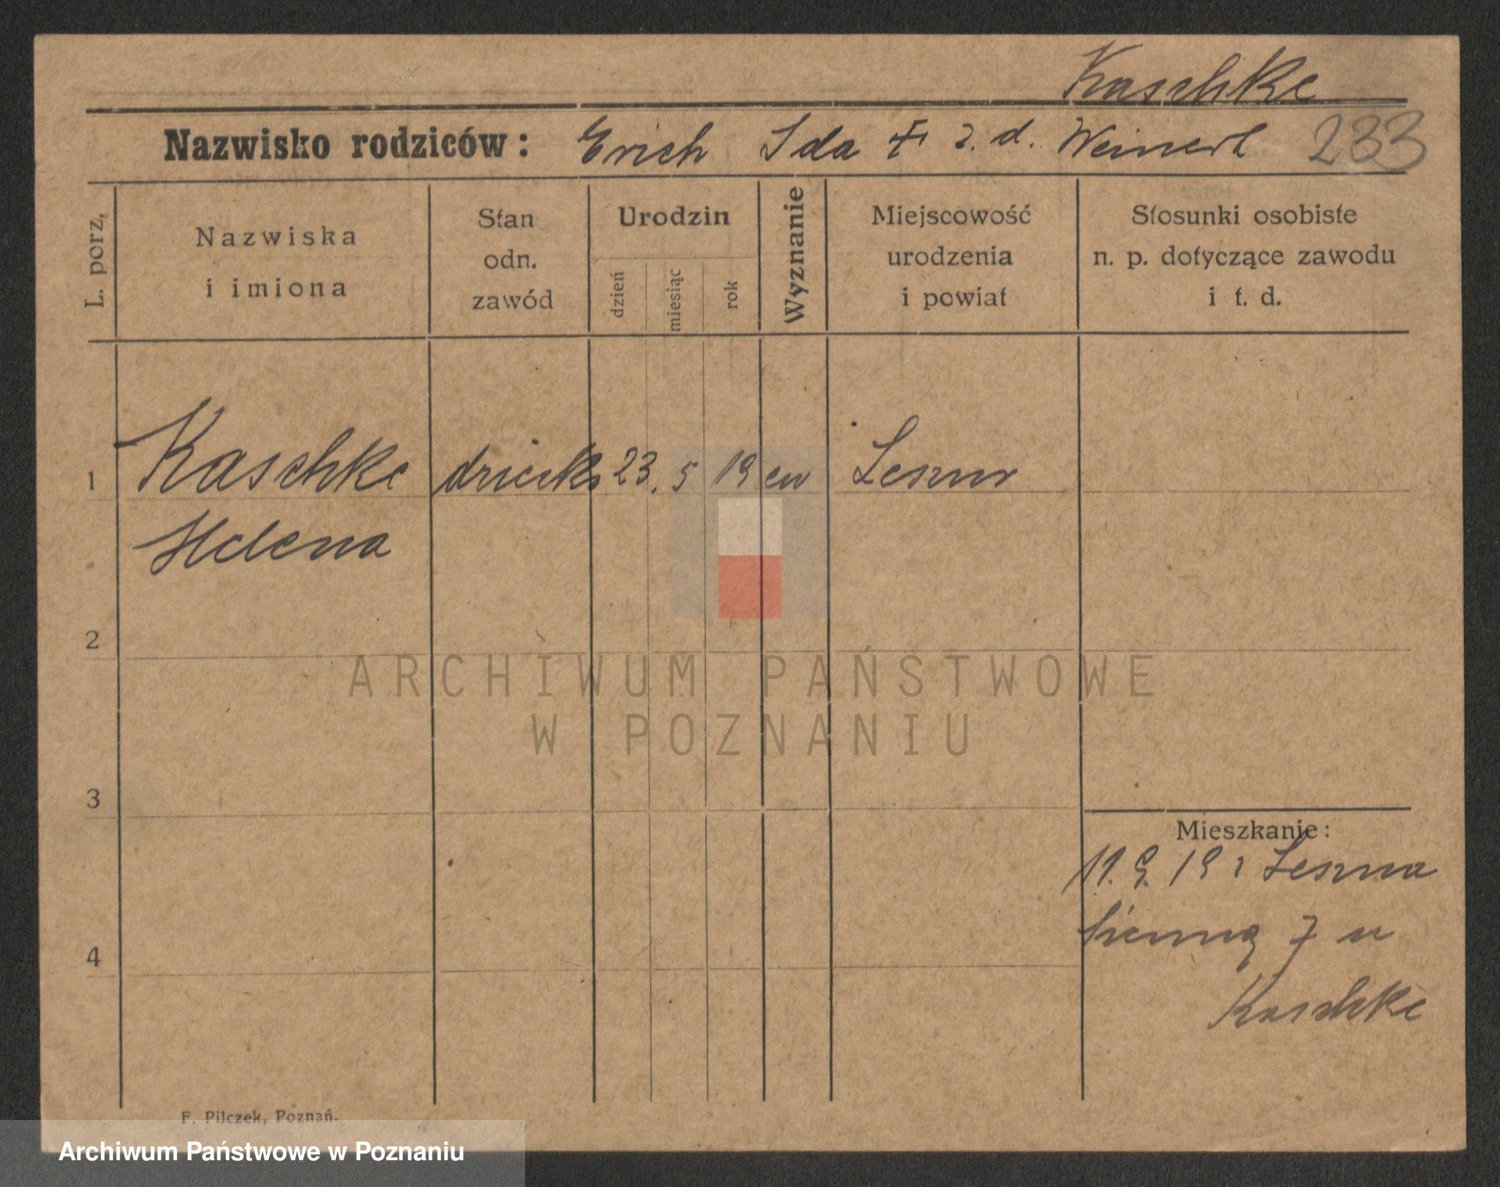 Kaschke
Nazwisko rodziców: Erich Ida z. d. Weinert 233
L. porz.
Nazwiska
i imiona
Stan
odn.
zawód
Urodzin
dzień
miesiąc
rok
Wyznanie
Miejscowość
urodzenia
i powiat
Stosunki osobiste
n. p. dotyczące zawodu
i t. d.
1 Kaschke 23. 5 19 ew
Helena
2
ARCHIWUM PAŃSTWOWE
W POZNANIU
3
Mieszkanie:
11. 9. 19 z Leszna
7 u
4
Kaschke
F. Pilczek, Poznań.
Archiwum Państwowe w Poznaniu